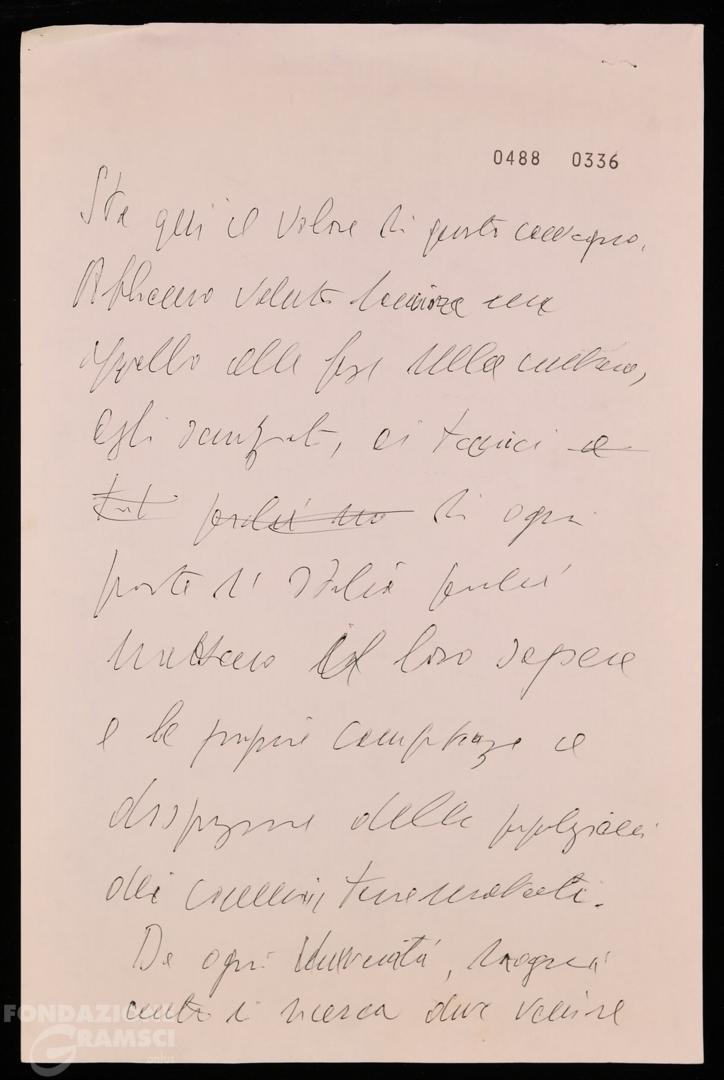 0488 0336
Sta qui il valore di questo convegno.
Abbiamo voluto lanciare un
appello alle forze della cultura,
agli scienziati, ai tecnici e
tutti perché no di ogni
parte d'Italia perché
mettano il loro sapere
e le proprie competenze a
disposizione delle popolazioni
dei comuni terremotati.
Da ogni Università, da ogni
centro di ricerca deve venire
FONDAZIONE
GRAMSCI
onlus